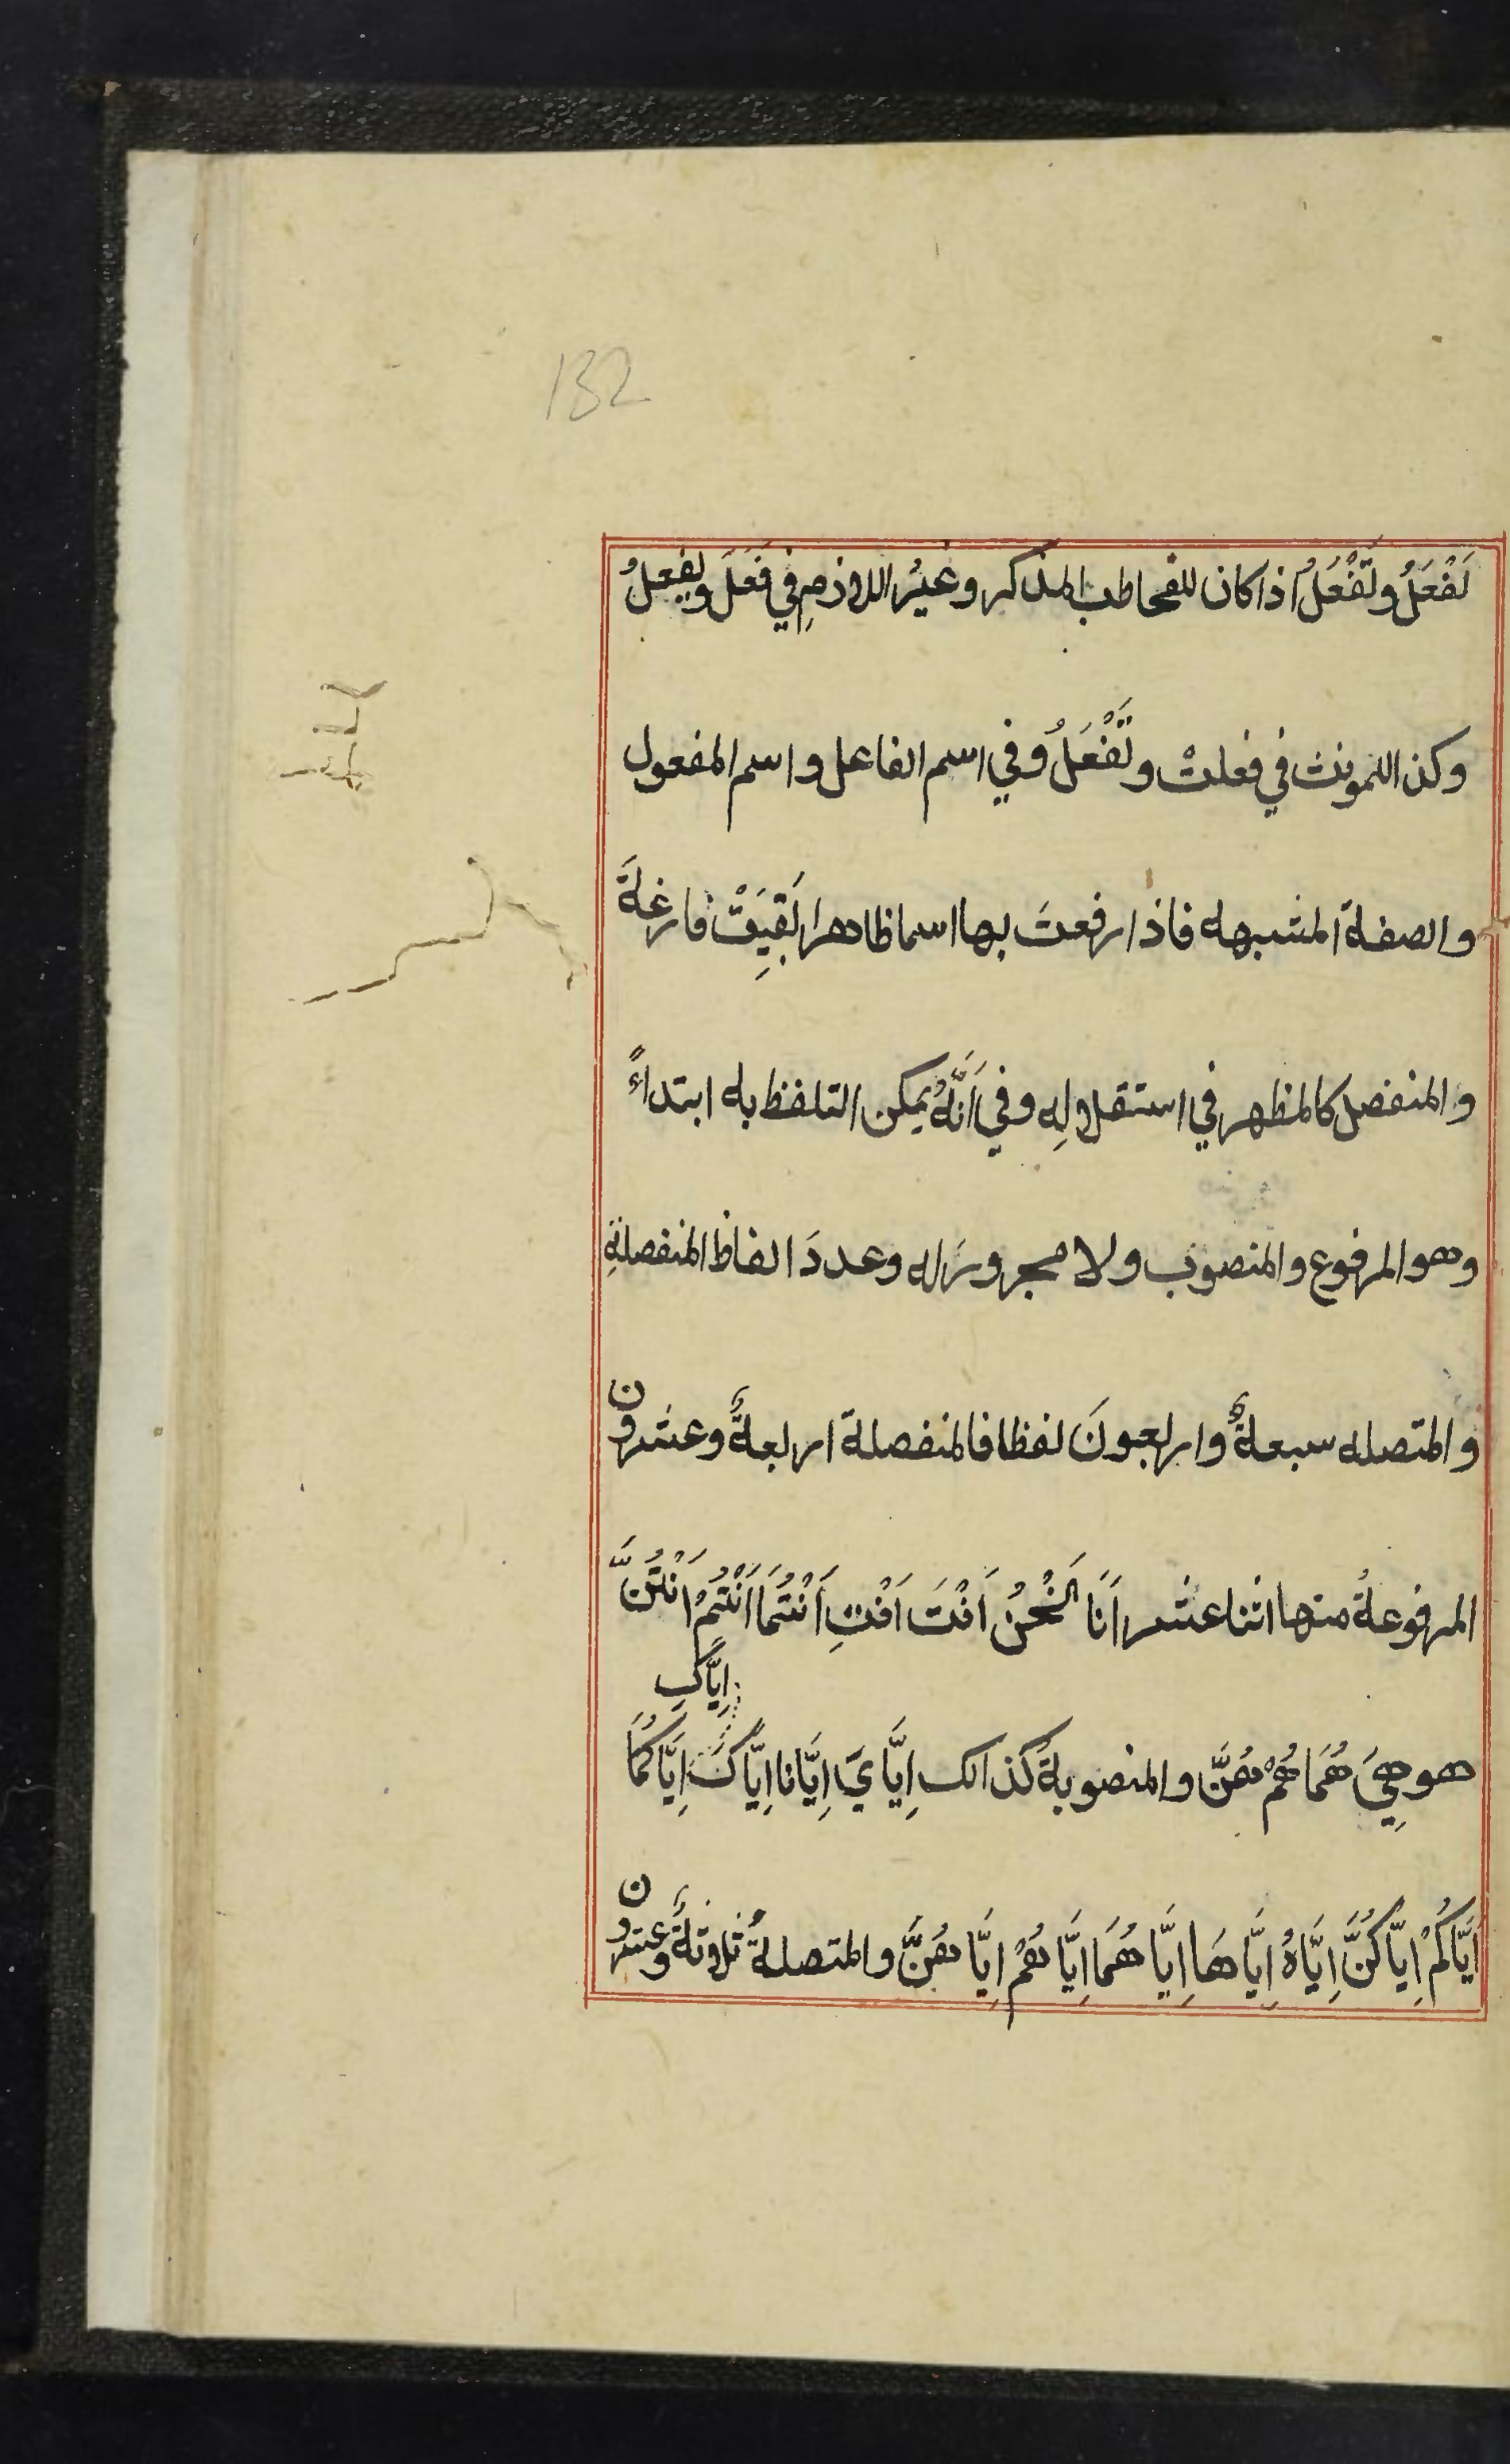 132
نَفْعَلُ وتَفْعَلُ اذا كان للمخاطب المذكر وغيرُ اللازمِ في فَعَلَ ويفعلُ
وكذا للمونث في فعلتْ وتَفْعَلُ وفي اسم الفاعل واسم المفعول
والصفة المشبهه فاذا رفعتَ بها اسما ظاهرا بَقِيَتْ فارغةً
والمنفصل كالمظهر في استقلالِه وفي اَنَّهُ يمكن التلفظ به ابتداءً
وهو المرفوع والمنصوب ولا مجرورَ له وعددَ الفاظ المنفصلةِ
والمتصله سبعةٌ واربعونَ لفظا فالمنفصلة اربعةٌ وعشرون
المرفوعةُ منها اثنا عشر اَنَا نَحْنُ اَنْتَ اَنْتِ اَنْتُمَا اَنْتُمْ اَنْتُنَّ
اِيَّاكِ
هو هِيَ هُمَا هُمْ هُنَّ والمنصوبةُ كذالك اِيَّايَ اِيَّانا اِيَّاكَ اِيَّاكُمَا
اِيَّاكُمْ اِيَّاكُنَّ اِيَّاهُ اِيَّاهَا اِيَّاهُمَا اِيَّاهُمْ اِيَّاهُنَّ والمتصلةُ ثلاثةٌ وعشرون